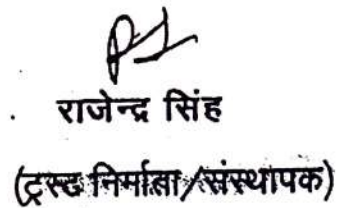 राजेन्द्र सिंह
(ट्रस्ट निर्माता/संस्थापक)